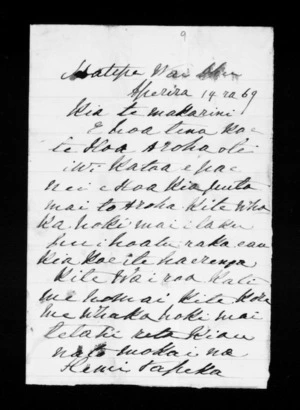 9
Matepe Wai
Aperira 14 ra 69
Kia te makarini
E hoa tena koe
te Hoa Aroha o te
iwi katoa e pae
nei e Hoa kia puta
mai to Aroha ki te
ka hoki mai i taku
kia koe i te haerenga
Ki te Wairoa
me homai ki te
me whaka hoki mai
tetahi reta kiau
na to mokai na
Hemi Tapeka